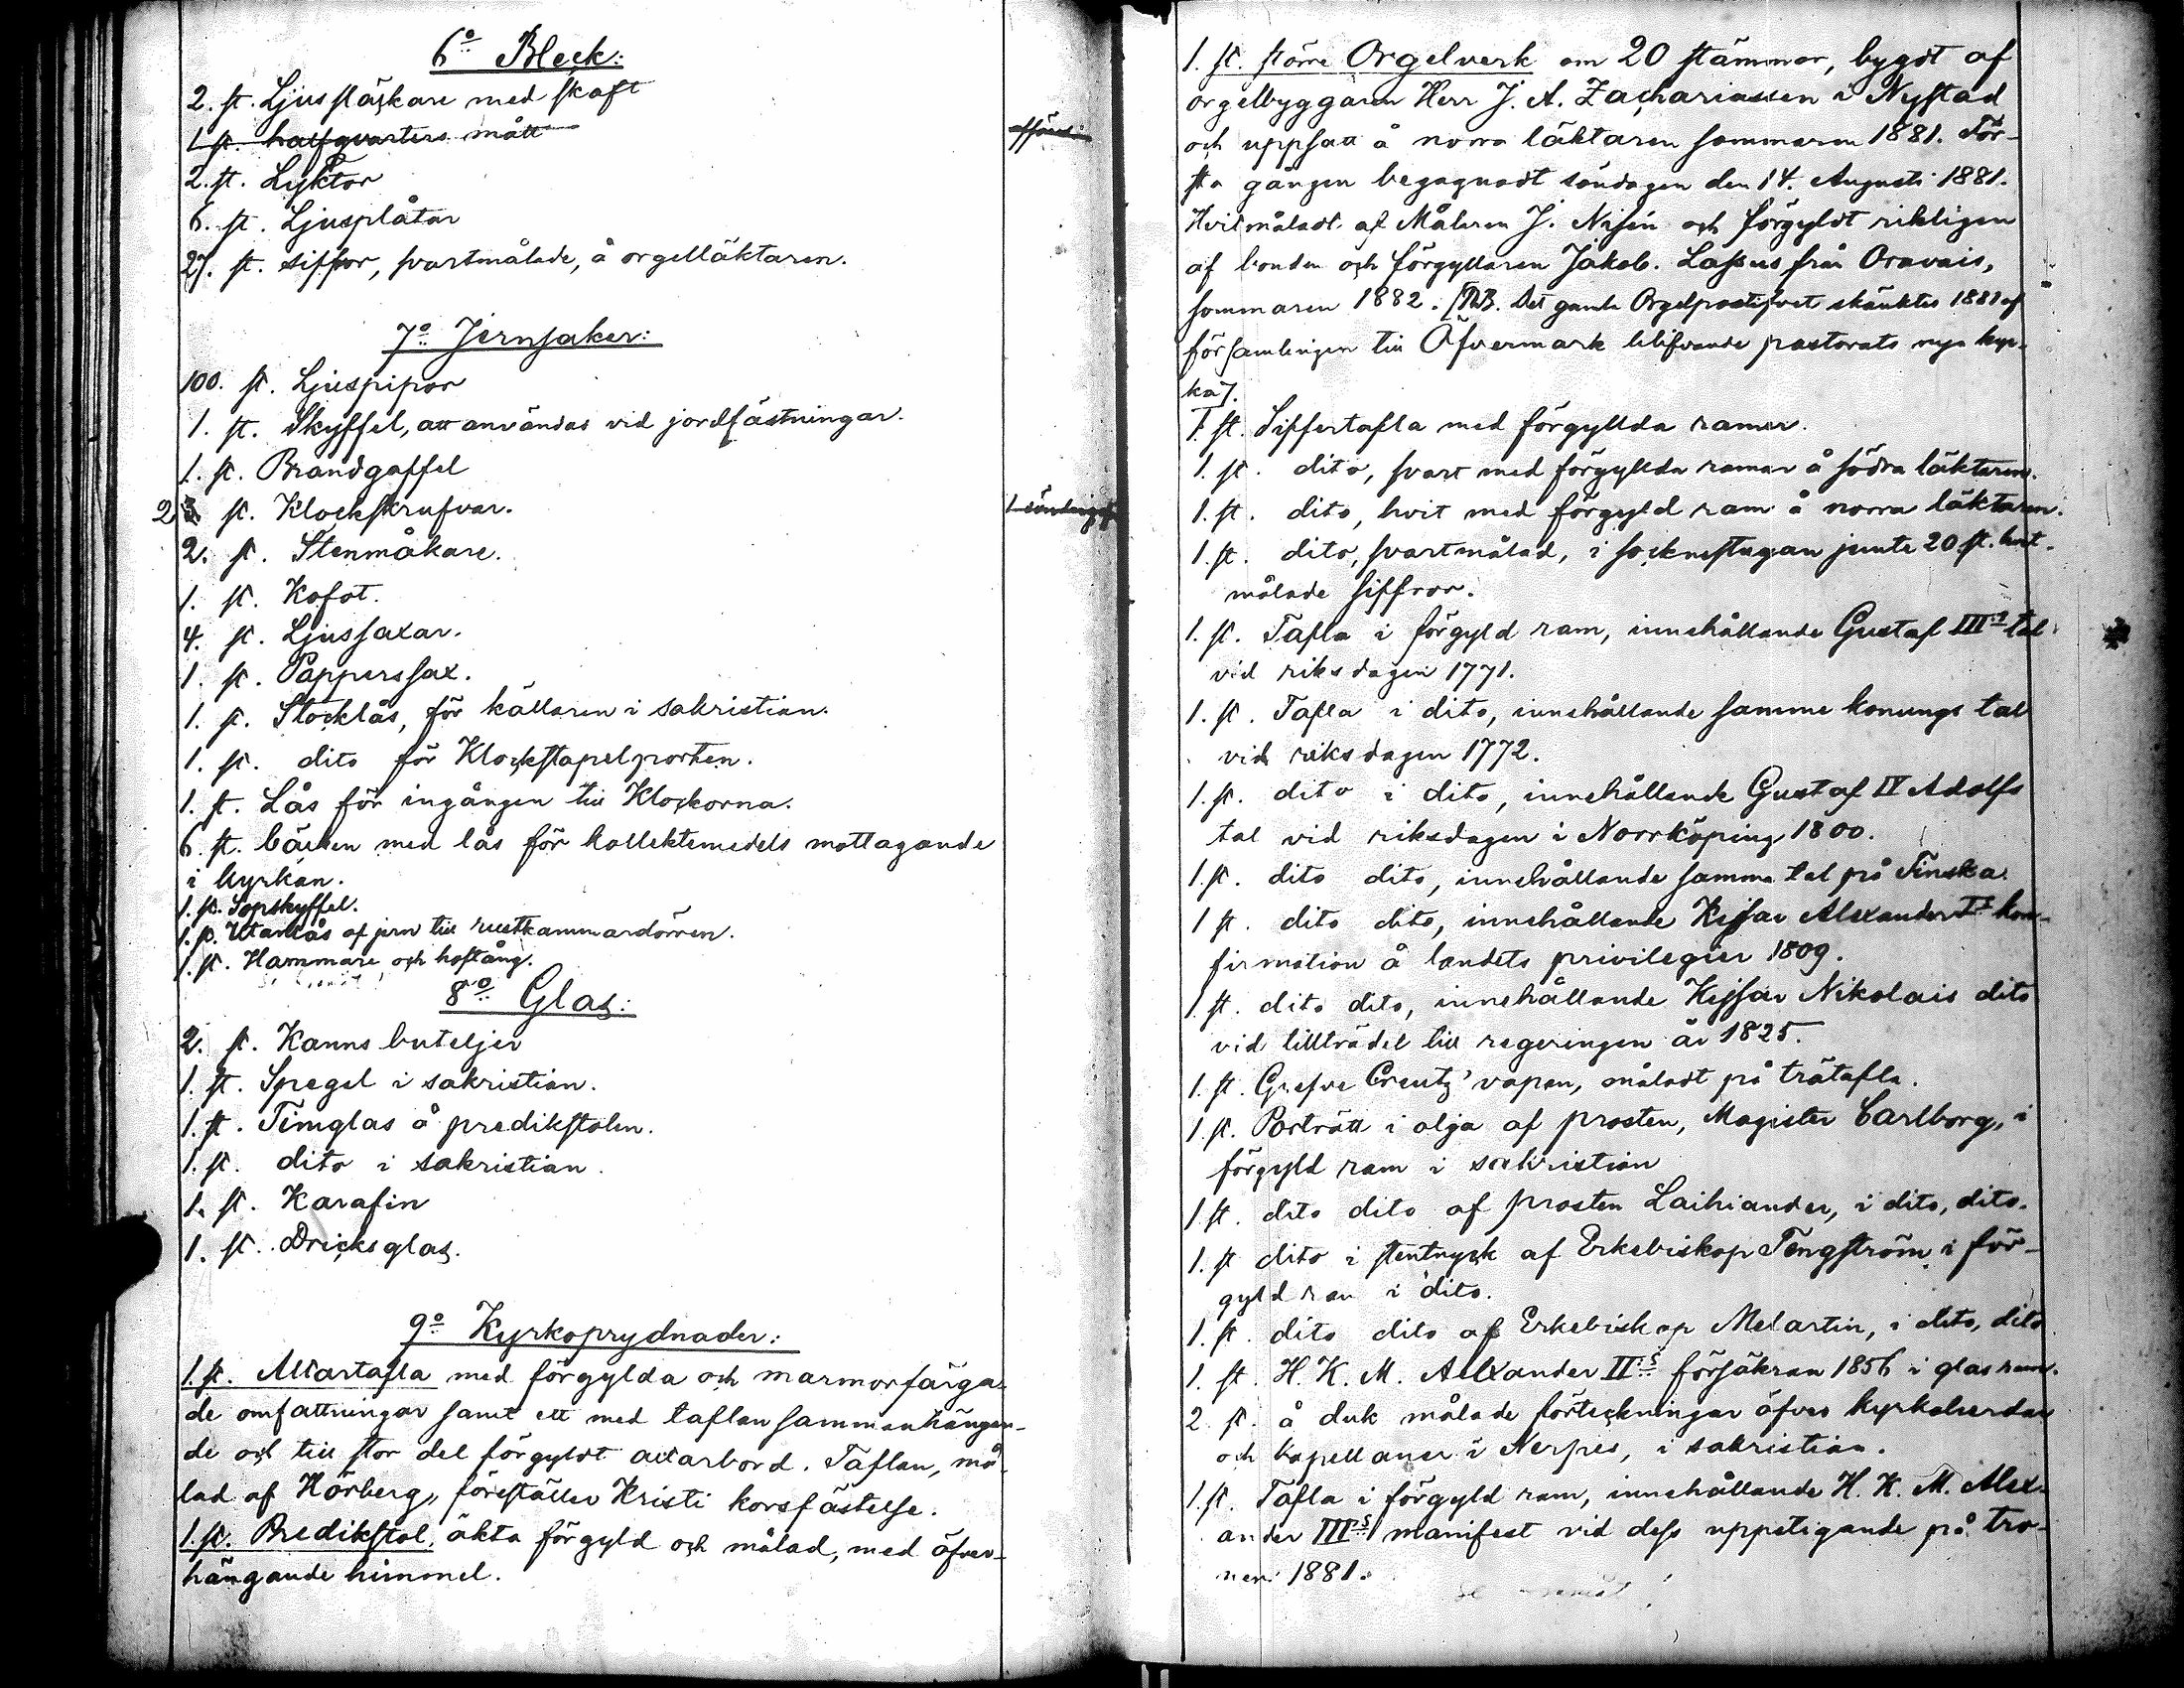 6:o Bleck:
2. st. Ljussläckare med skaft
1 st. halfqvarters mått
2. st. Lyktor
6. st. Ljusplåtar
27. st. siffror, svartmålade, å orgelläktaren.
7:o Jernsaker:
100. st. Ljuspipor
1. st. Skyffel, att användas vid jordfästningar.
1. st. Brandgaffel
2 st. Klockskrufvar.
2. st. Stenmåkare.
1. st. Kofot.
4. st. Ljussaxar.
1. st. Papperssax.
1. st. Stocklås, för källaren i sakristian.
1. st. dito för Klockstapelporten.
1. st. Lås för ingången till Klockorna.
6. st. bäcken med lås för kollektemedels mottagande
i kyrkan.
1. st. Sopskyffel.
1. st. Utanlås af jern till rustkammardörren.
1. st. Hammare och hoftång.
8:o Glas:
2. st. Kanns buteljer
1. st. Spegel i sakristian.
1. st. Timglas å predikstolen.
1. st. dito i sakristian.
1. st. Karafin
1. st. Dricksglas.
9:o Kyrkoprydnader:
1. st. Altartafla med förgylda och marmorfärga-
de omfattningar samt ett med taflan sammanhängan-
de och till stor del förgyldt altarbord. Taflan, må-
lad af Hörberg, föreställer Kristi korsfästelse.
1. st. Predikstol, äkta förgyld och målad, med öfver-
hängande himmel.
1. st. större Orgelverk om 20 stämmor, bygdt af
orgelbyggaren Herr J. A. Zachariassen i Nystad
och uppsatt å norra läktaren sommaren 1881. För-
sta gången begagnadt söndagen den 14. Augusti 1881.
Hvitmåladt af Målaren J. Nisén och förgyldt rikligen
af bonden och förgyllaren Jakob. Lassus från Oravais,
sommaren 1882. [NB. Det gamla Orgelpositivet skänktes 1881 af
församlingen till Öfvermark blifvande pastorats nya kyr-
ka].
1. st. Siffertafla med förgyllda ramar.
1. st. dito, svart med förgyllda ramar å södra läktaren.
1. st. dito, hvit med förgyld ram å norra läktaren.
1. st. dito, svartmålad, i socknestugan jemte 20 st. hvit-
målade siffror.
1. st. Tafla i förgyld ram, innehållande Gustaf III:s tal
vid riksdagen 1771.
1. st. Tafla i dito, innehållande samme konungs tal
vid riksdagen 1772.
1. st. dito i dito, innehållande Gustaf IV Adolfs
tal vid riksdagen i Norrköping 1800.
1. st. dito dito, innehållande samma tal på Finska.
1 st. dito dito, innehållande Kejsar Alexander I:s kon-
firmation å landets privilegier 1809.
1. st. dito dito, innehållande Kejsar Nikolais dito
vid tillträdet till regeringen år 1825.
1. st. Grefve Creutz' vapen, måladt på trätafla.
1. st. Porträtt i olja af prosten, Magister Carlborg, i
förgyld ram i sakristian
1 st. dito dito af prosten Laihiander, i dito, dito.
1. st dito i stentryck af Erkebiskop Tengström i för-
gyld ram i dito.
1. st. dito dito af Erkebiskop Melartin, i dito, dito
1. st. H. K. M. Alexander II:s försäkran 1856 i glas ram.
2 st. å duk målade förteckningar öfver kyrkoherdar
och kapellaner i Nerpes, i sakristian.
1. st. Tafla i förgyld ram, innehållande H. K. M. Alex-
ander III:s manifest vid dess uppstigande på tro-
nen 1881.